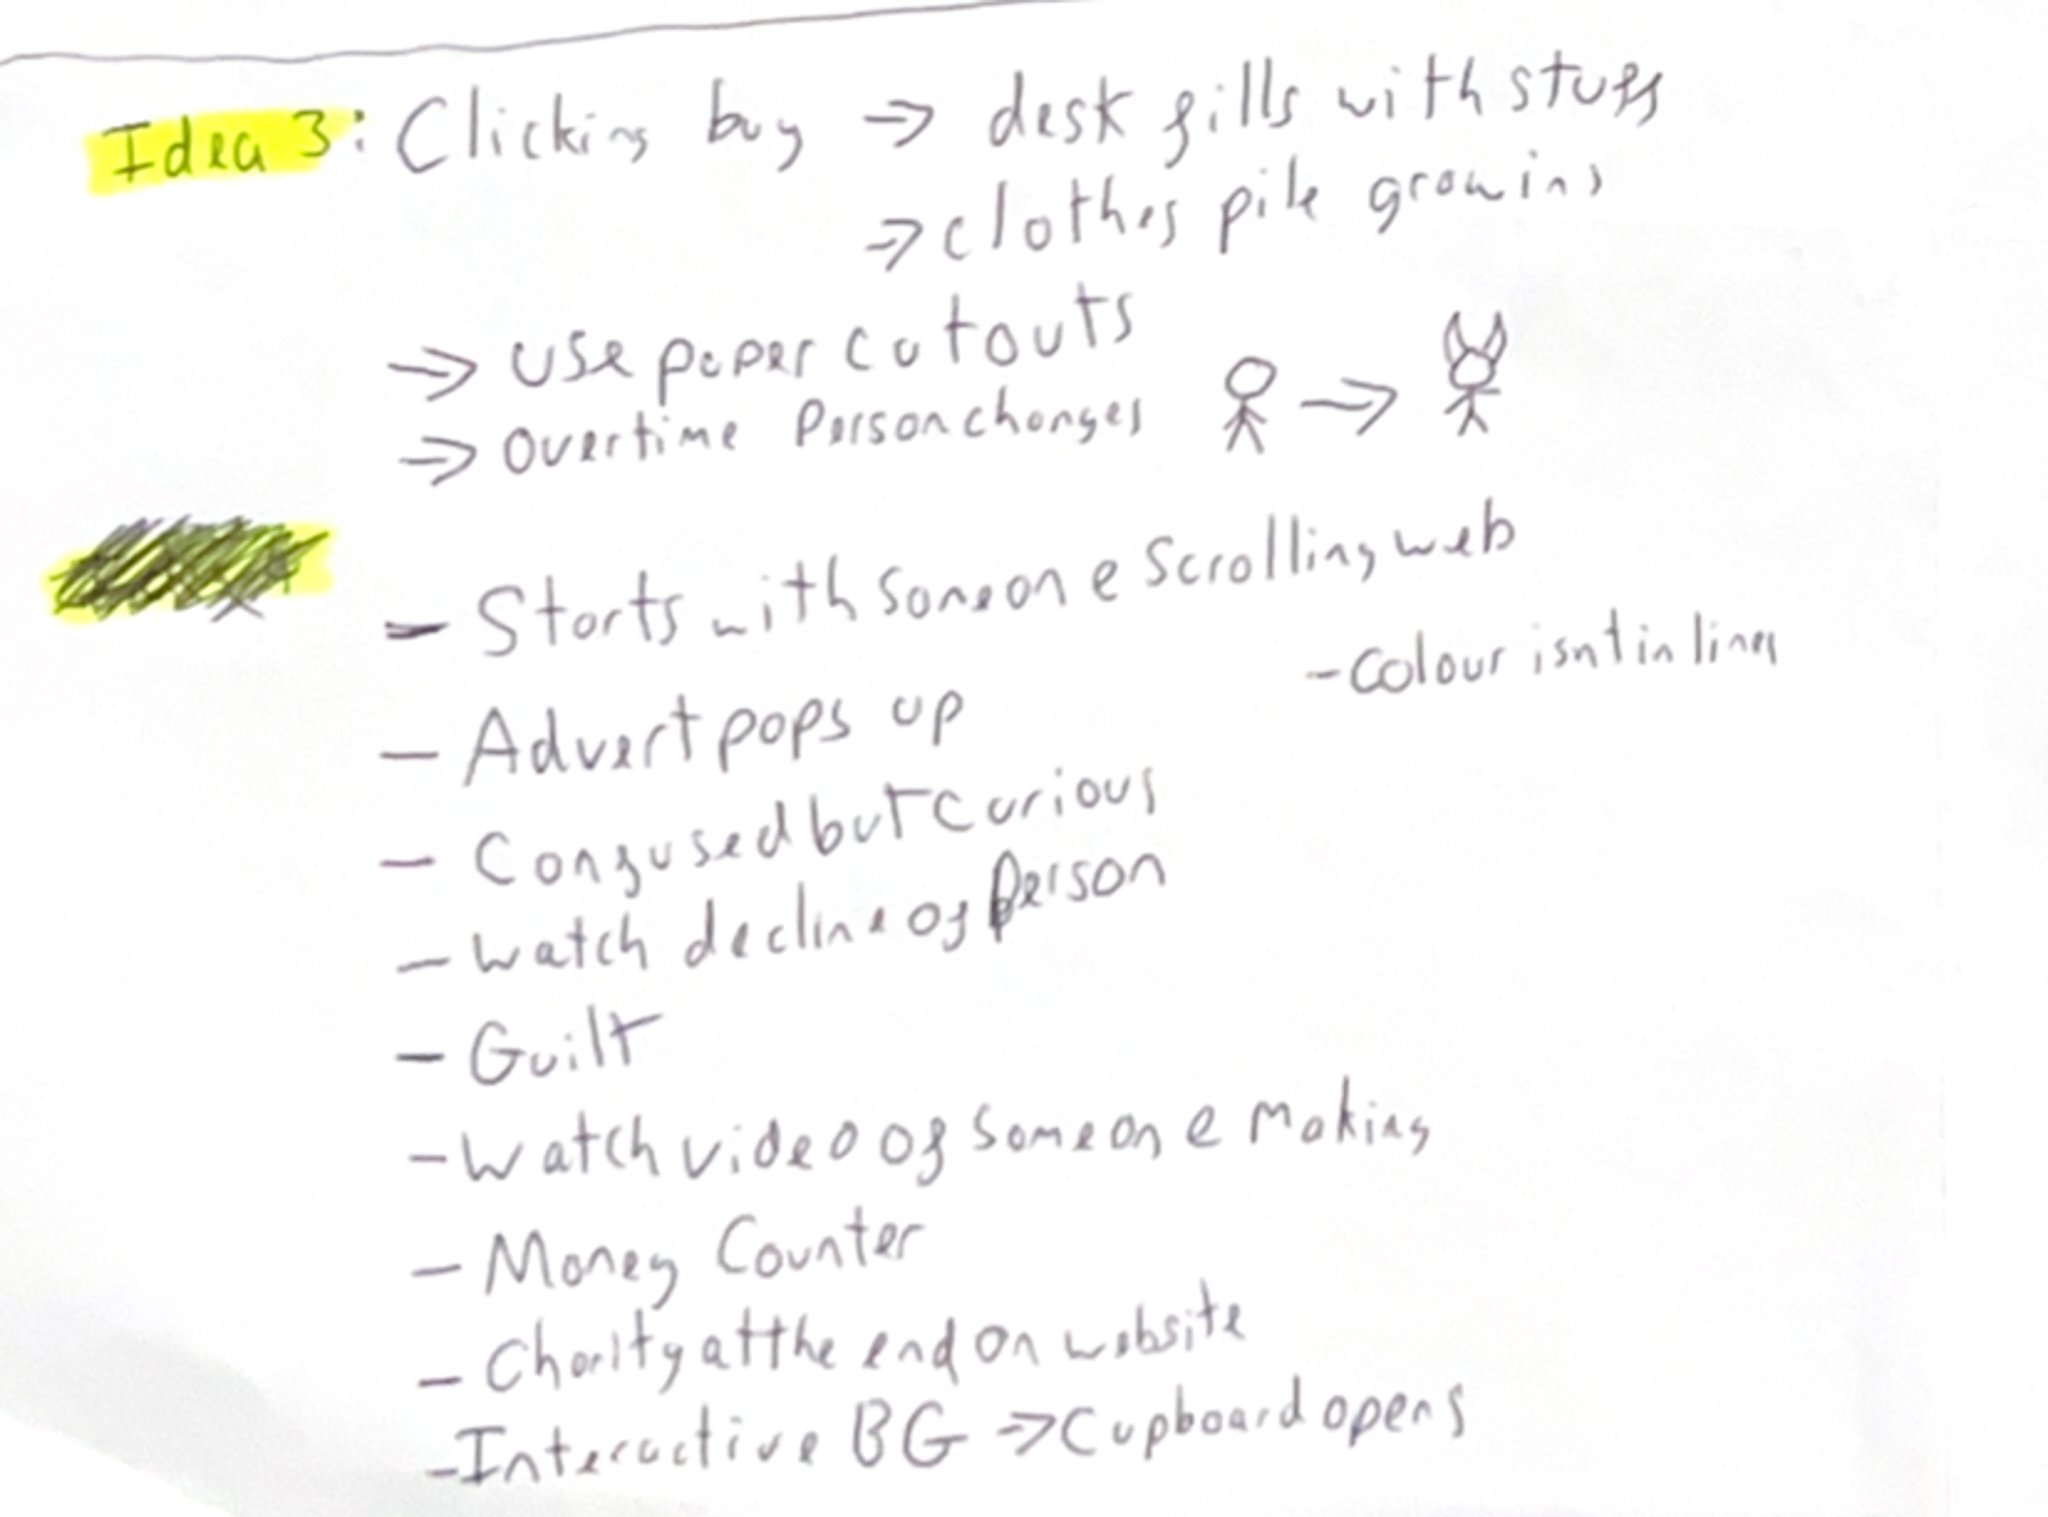 Idea 3: Clicking buy → desk fills with stuff
→ clothes pile growing
→ use paper cutouts
→ Overtime Person changes →
- Starts with someone scrolling web
- Colour isnt in lines
- Advert pops up
- Confused but curious
- Watch decline of Person
- Guilt
- Watch video of someone making
- Money Counter
- Charity at the end on website
- Interactive BG → Cupboard opens